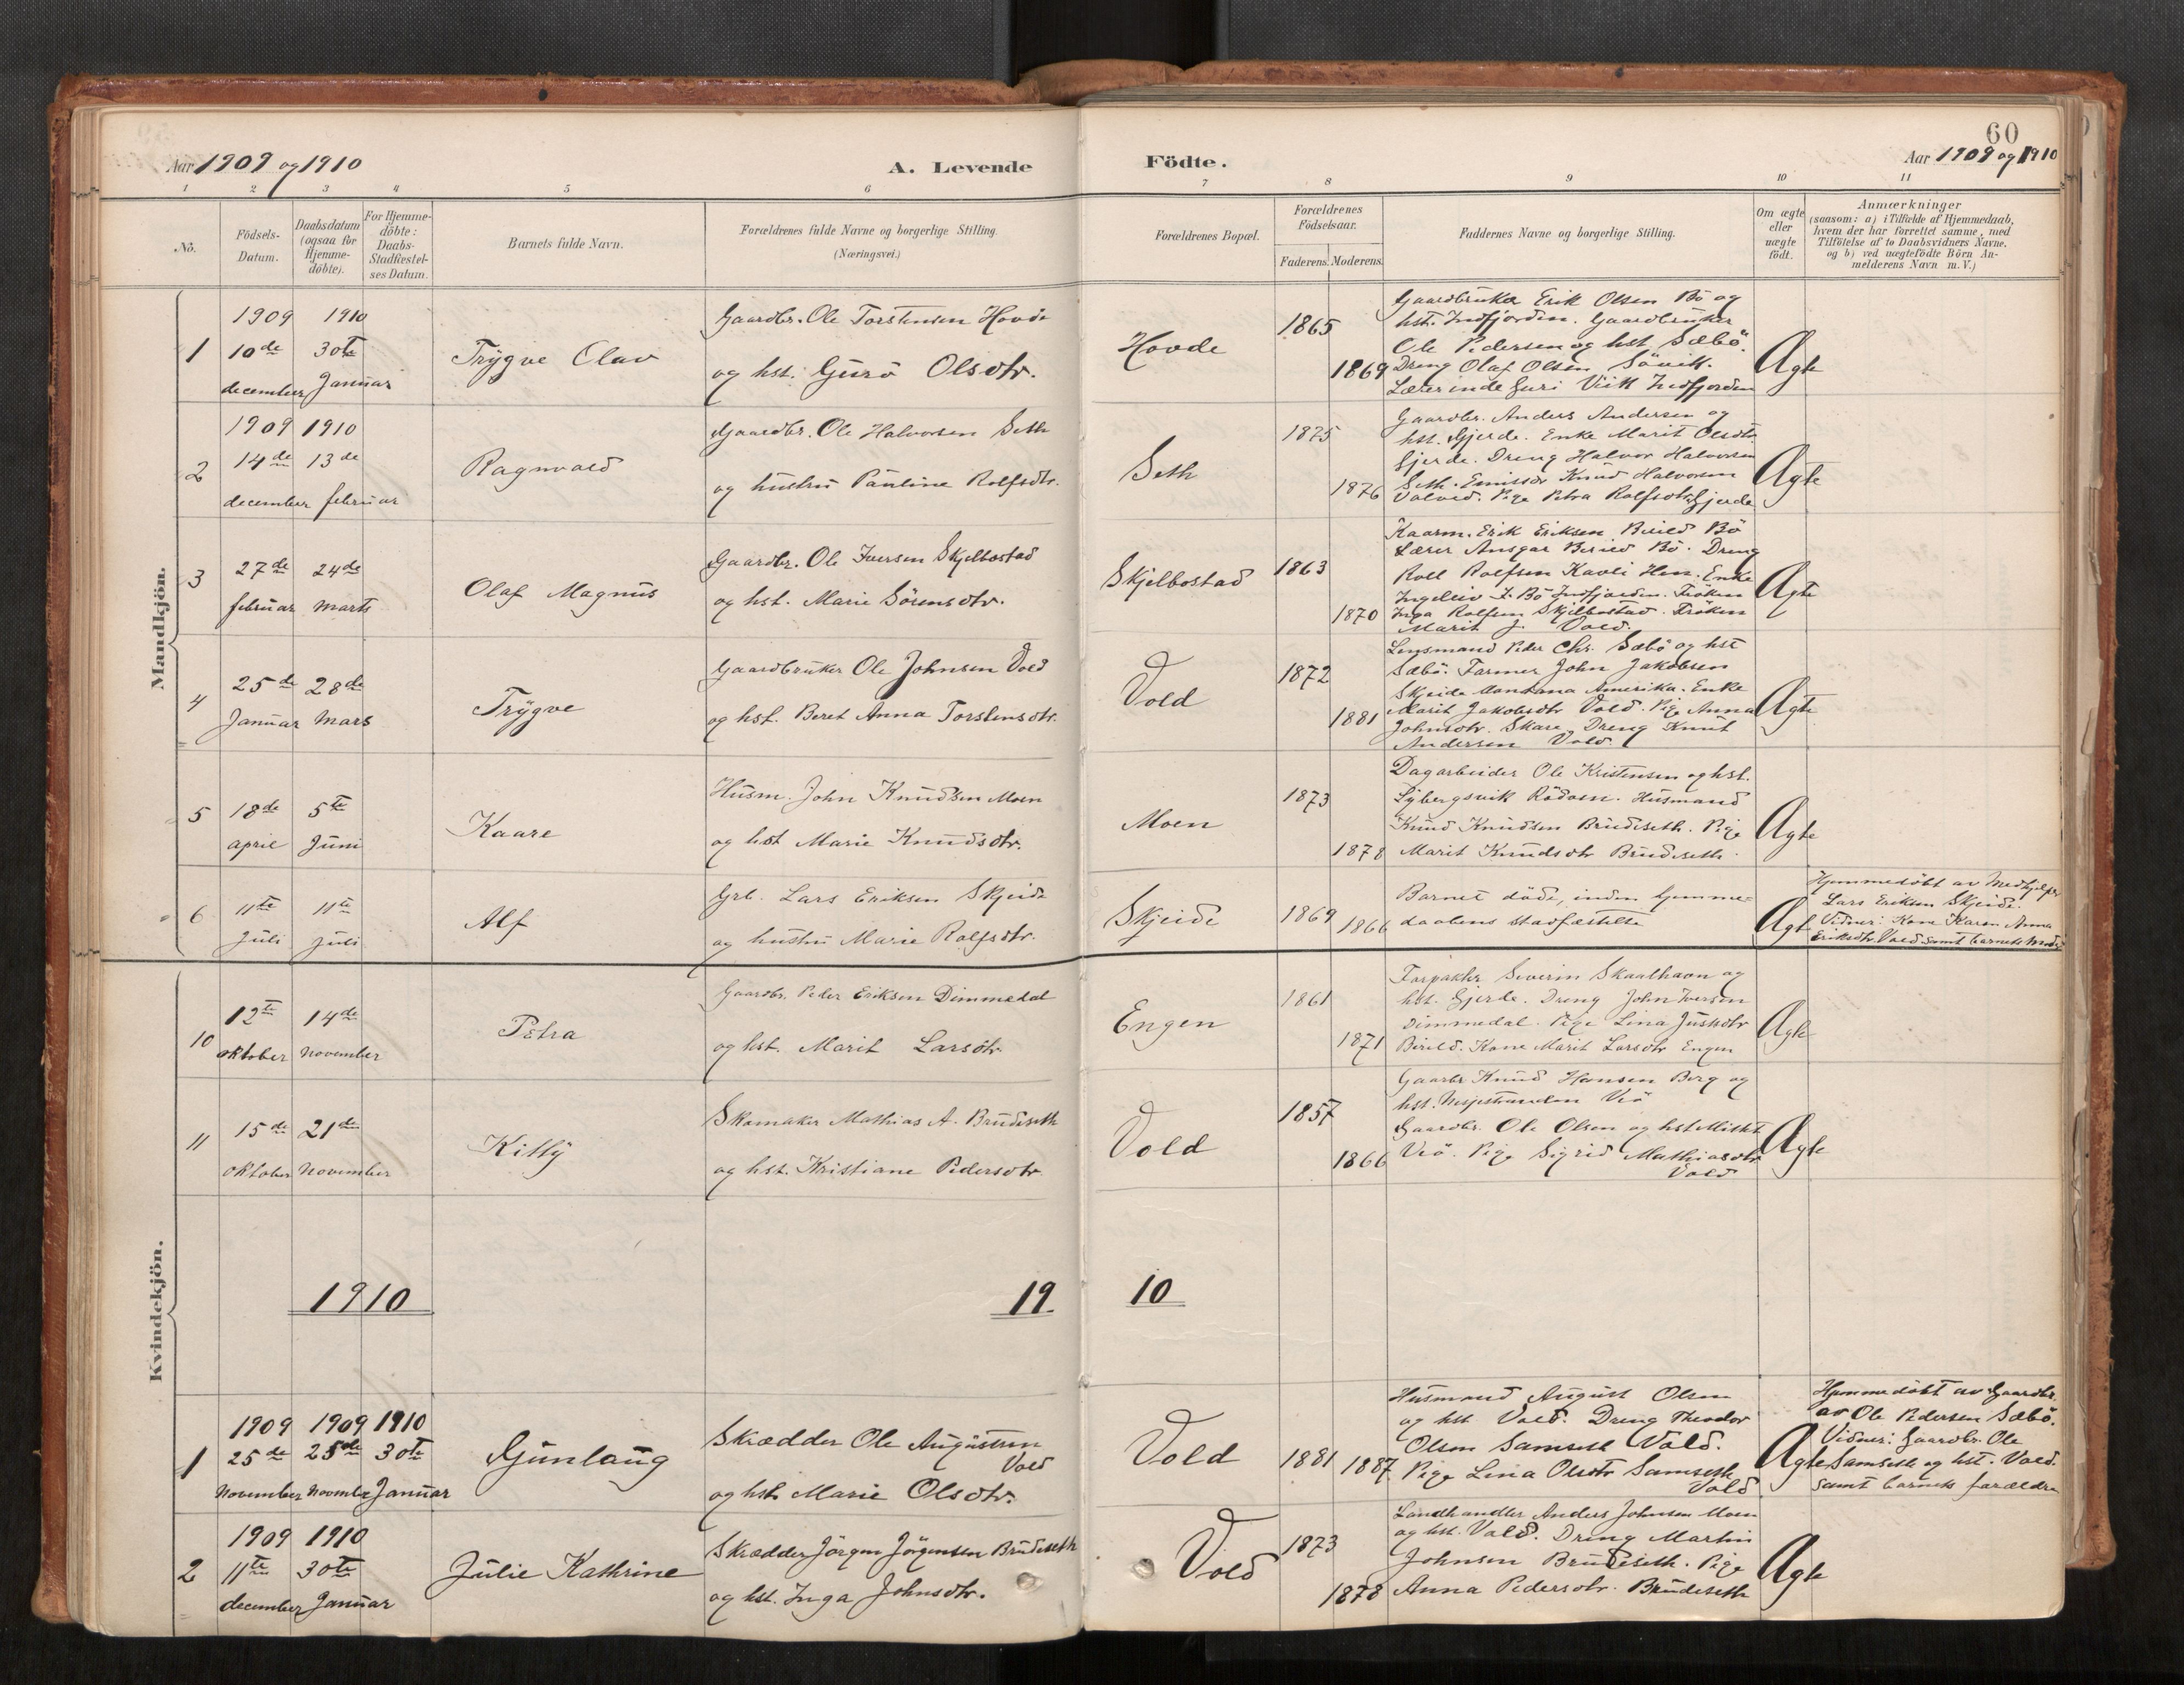 60
Aar 1909 og 1910
A. Levende
Födte.
Aar 1909 og 1910
1 2 3 4 5 6 7 8 9 10 11
No.
Födsels-
Datum.
Daabsdatum
(ogsaa for
Hjemme-
döbte).
For Hjemme-
döbte:
Daabs-
Stadfæstel-
ses Datum.
Barnets fulde Navn.
Forældrenes fulde Navne og borgerlige Stilling.
(Næringsvei.)
Forældrenes Bopæl.
Forældrenes
Födselsaar.
Faderens. Moderens.
Faddernes Navne og borgerlige Stilling.
Om ægte
eller
uægte
født.
Anmærkninger
(saasom: a) i Tilfælde af Hjemmedaab,
hvem der har forrettet samme, med
Tilföielse af to Daabsvidners Navne.
og b) ved uægtefödte Börn An-
melderens Navn m. V.)
Mandkjön.
1
1909 1910
10de 30te
december Januar
Trygve Olav
Gaardbr. Ole Torstensen Hovde
og hst. Guro Olsdtr.
Hovde
1865
1869
Gaardbruker Erik Olsen Bö og
hst. Indfjorden. Gaardbruker
Ole Pedersen og hst Sæbö.
Dreng Olaf Olsen Sövik.
Lærerinde Guri Viik Indfjorden
Ægte
2
1909 1910
14de 13de
december februar
Ragnvald
Gaardbr. Ole Halvorsen Seth
og hustru Pauline Rolfsdtr.
Seth
1875
1876
Gaardbr. Anders Andersen og
hst. Gjerde. Enke Marit Olsdtr
Gjerde. Dreng Halvor Halvorsen
Seth. Emissær Knud Halvorsen
Pige Petra Rolfsdtr Gjerde
Ægte
3
27de 24de
februar marts
Olaf Magnus
Gaardbr. Ole Iversen Skjelbostad
og hst. Marie Sörensdtr.
Skjelbostad
1863
1870
Kaarm. Erik Eriksen Bö
Lærer Ansgar Bö. Dreng
Rolf Rolfsen Kavli Hen. Enke
Bö Indfjorden. Fröken
Inga Rolfsen Skjelbostad. Fröken
Marit J. Vold.
Ægte
4
25de 28de
Januar Mars
Trygve
Gaardbruker Ole Johnsen Vold
og hst. Beret Anna Torstensdtr.
Vold
1872
1881
Lensmand Peder Chr. Sæbö og hst
Sæbö. Farmer John Jakobsen
Skeide Montana Amerika. Enke
Marit Jakobsdtr Vold. Pige Anna
Johnsdtr. Skare. Dreng Knut
Andersen Vold.
Ægte
5
18de 5te
april Juni
Kaare
Husm. John Knudsen Moen
og hst Marie Knudsdtr.
Moen
1873
1878
Dagarbeider Ole Kristensen og hst.
Lybergsvik Rödven. Husmand
Knud Knudsen Brudeseth. Pige
Marit Knudsdtr Brudeseth.
Ægte
6
11te 11te
Juli Juli
Alf
Grb. Lars Eriksen Skjeide
og hustru Marie Rolfsdtr.
Skjeide
1869
1866
Barnet döde, inden hjemme-
daabens stadfæstelse
Ægte
Hjemmedöbt av Medhjelper
Lars Eriksen Skjeide.
Vidner: Kone Karen Anna
Eriksdtr. Vold samt barnets Moder
Kvindekjön.
10
12te 14de
oktober november
Petra
Gaardbr. Peder Eriksen Dimmedal
og hst. Marit Larsdtr.
Engen
1861
1871
Forpakter Severin Skaalhavn og
hst. Gjerde. Dreng John Iversen
Dimmedal. Pige Lina Justsdtr
Kone Marit Larsdtr Engen
Ægte
11
15de 21de
oktober november
Kitty
Skomaker Mathias A. Brudeseth
og hst. Kristiane Pedersdtr.
Vold
1857
1866
Gaardbr Knud Hansen Berg og
hst. Nesjestranden Veö
Gaardbr. Ole Olsen og hst
Veö. Pige Sigrid Mathiasdtr
Vold
Ægte
1910 19 10
1
1909 1909 1910
25de 25de 30te
november november Januar
Gunlaug
Skrædder Ole Augustsen
Vold
og hst. Marie Olsdtr.
Vold
1881 1887
Husmand August Olsen
og hst Vold. Dreng Theodor
Olsen Samseth Vold.
Pige Lina Olsdtr Samseth
Vold
Ægte
Hjemmedöbt av Gaardbr.
av Ole Pedersen Sæbö.
Vidner: Gaardbr. Ole
Samseth og hst. Vold.
samt barnets forældre
2
1909 1910
11te 30te
december Januar
Julie Kathrine
Skrædder Jörgen Jörgensen Brudeseth
og hst. Inga Johnsdtr.
Vold
1873
1878
Landhandler Anders Johnsen Moen
og hst. Vold. Dreng Martin
Johnsen Brudeseth. Pige
Anna Pedersdtr. Brudeseth
Ægte